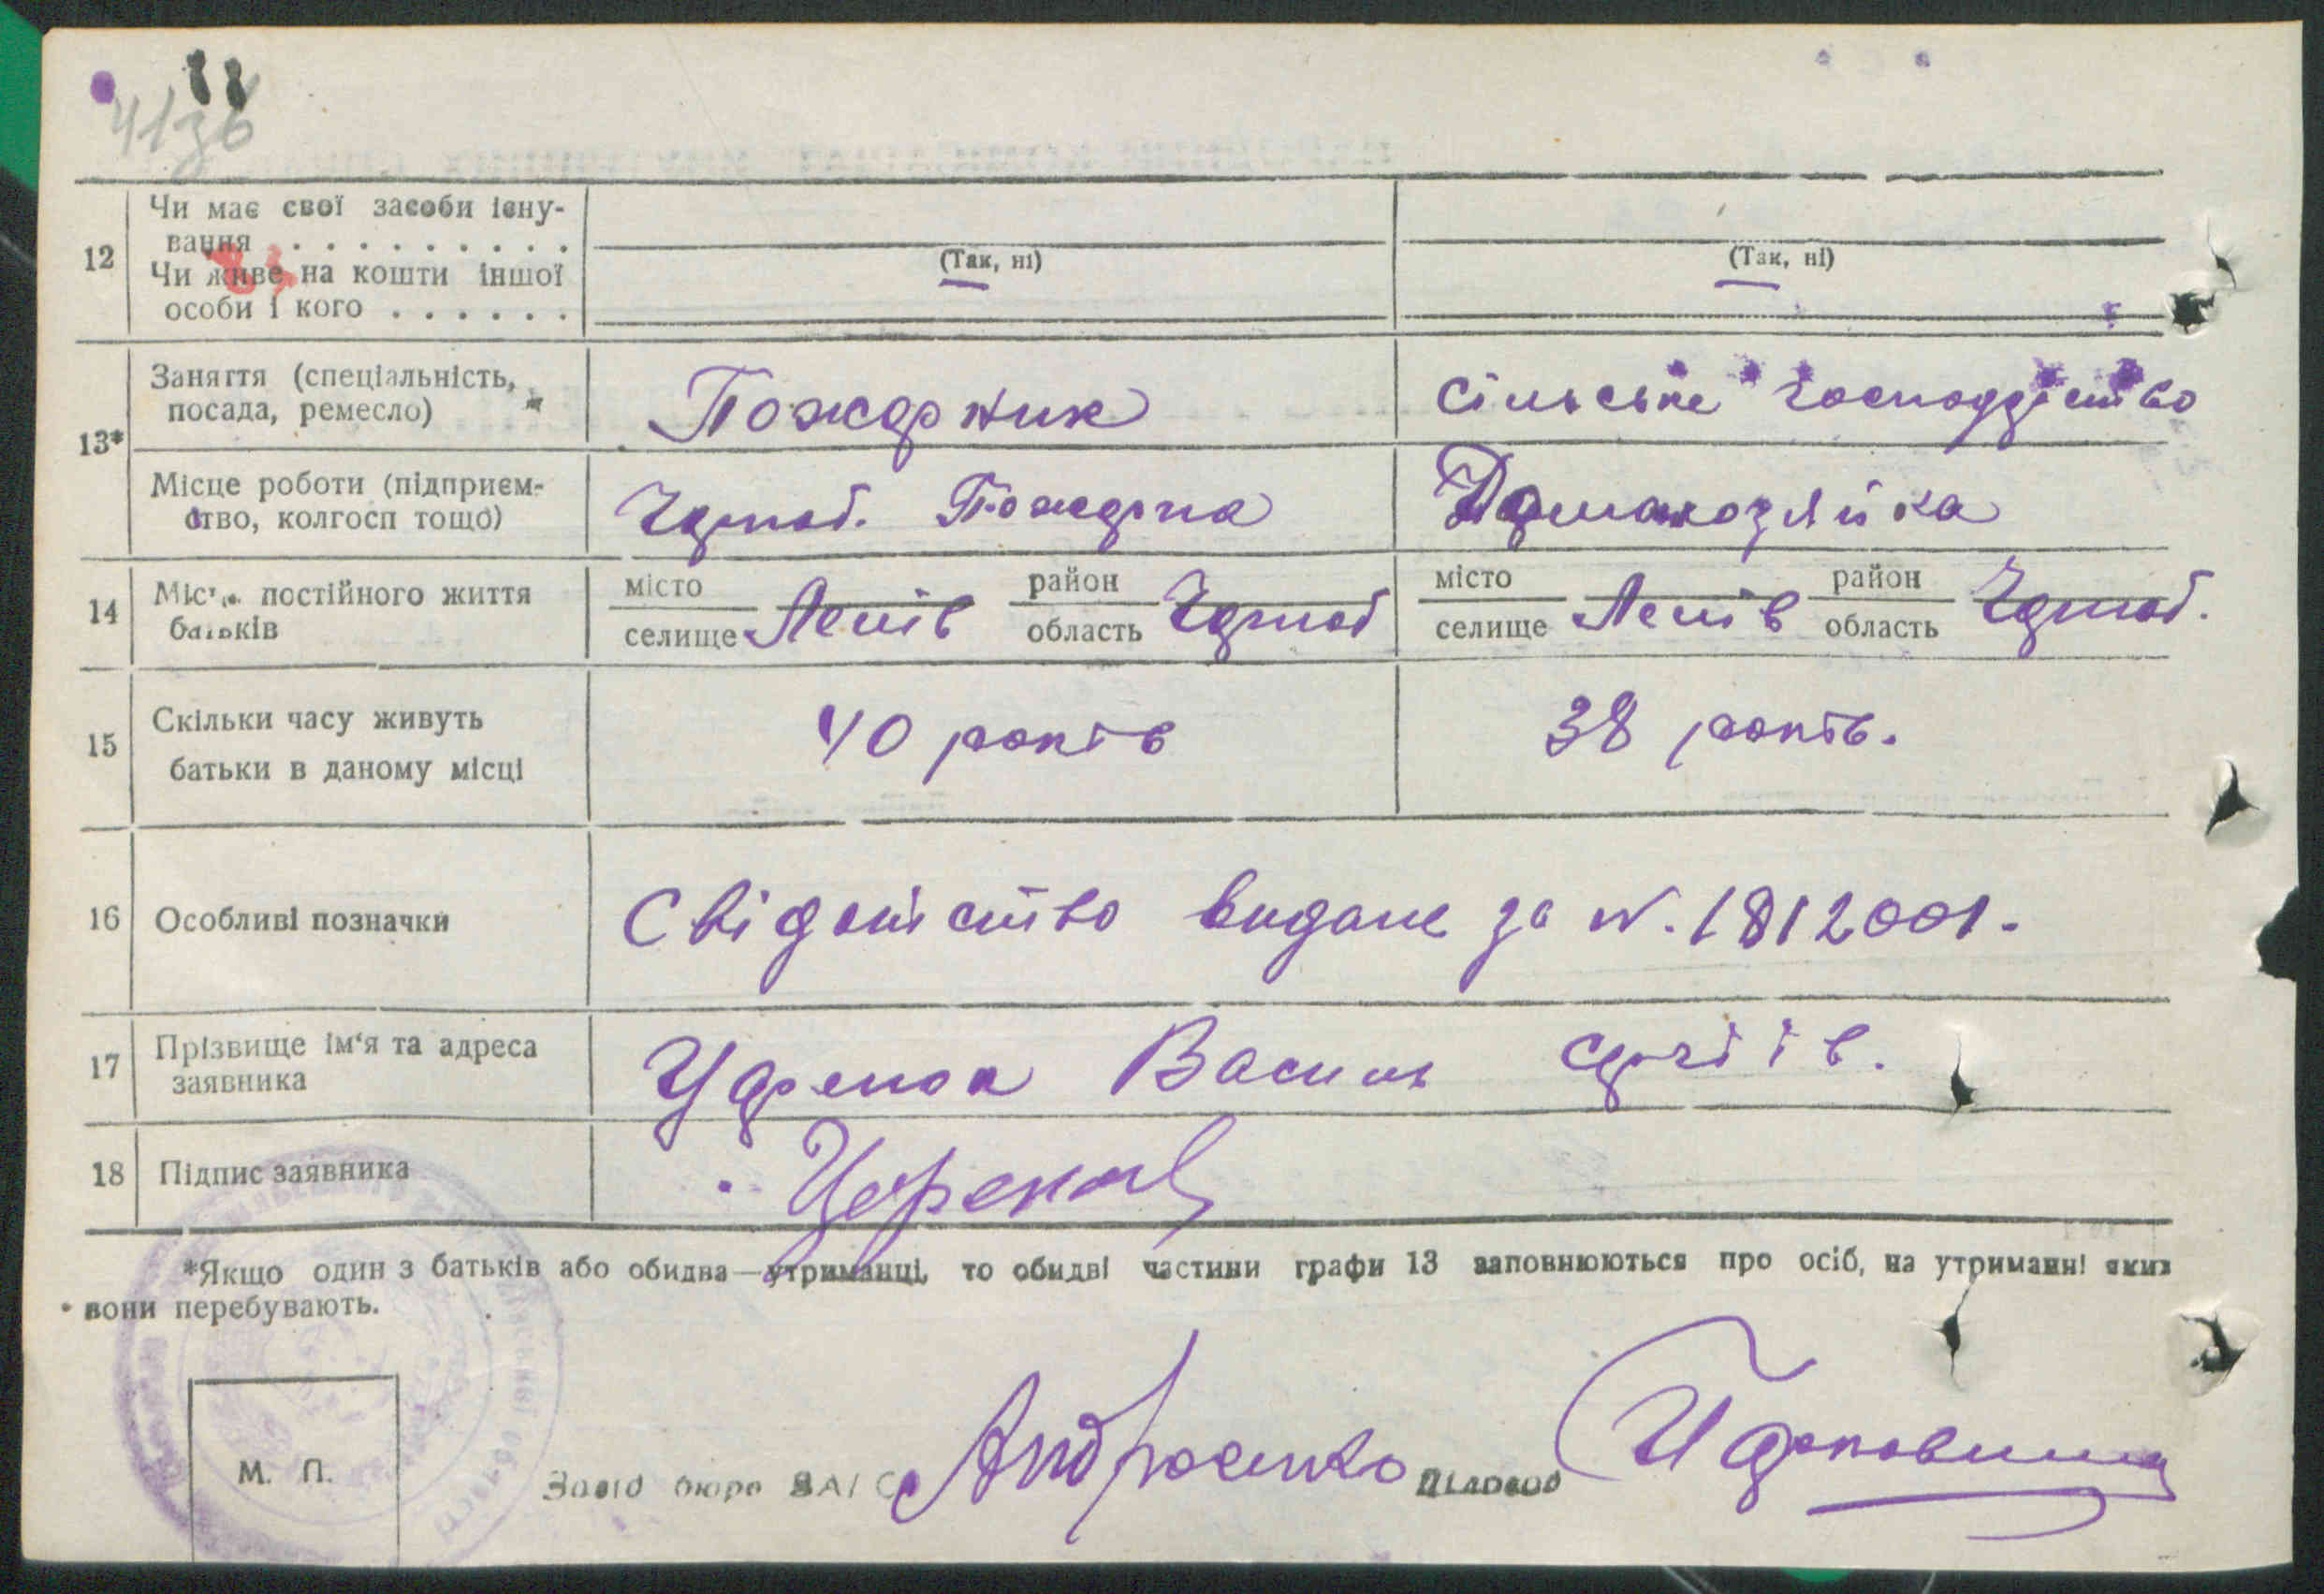 41зб
12
Чи має свої засоби існу-
вання . . . . . . . . .
Чи живе на кошти іншої
особи і кого . . . . . .
(Так, ні)
(Так, ні)
13*
Заняття (спеціальність,
посада, ремесло)
Пожарник
Сільське господарство
Місце роботи (підприєм-
ство, колгосп тощо)
Чорноб. Пожарна
Домахозяйка
14
Місце постійного життя
батьків
місто
селище
Лелів
район
область
Чорноб
місто
селище
Лелів
район
область
Чорноб.
15
Скільки часу живуть
батьки в даному місці
40 років
38 років.
16
Особливі позначки
Свідоцтво видане за N. 1812001.
17
Прізвище ім'я та адреса
заявника
Василь Сергіїв.
18
Підпис заявника
*Якщо один з батьків або обидва—утриманці, то обидві частини графи 13 заповнюються про осіб, на утриманні яких
вони перебувають.
М. П.
Завід бюро ЗАГС
Андрієнко
Діловод